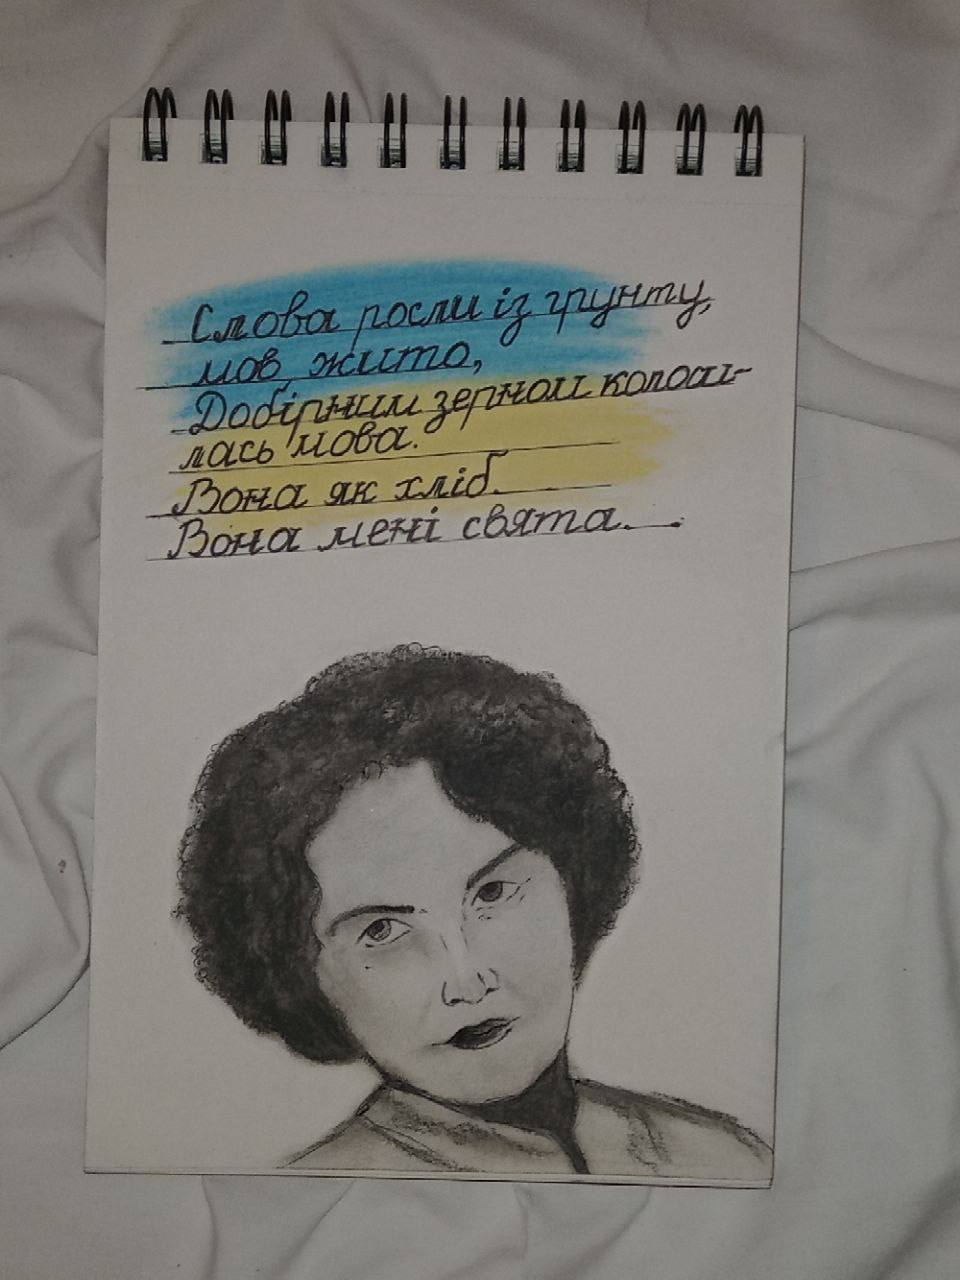 Слова росли із грунту,
мов жито,
Добірним зерном колоси-
лась мова.
Вона як хліб.
Вона мені свята.